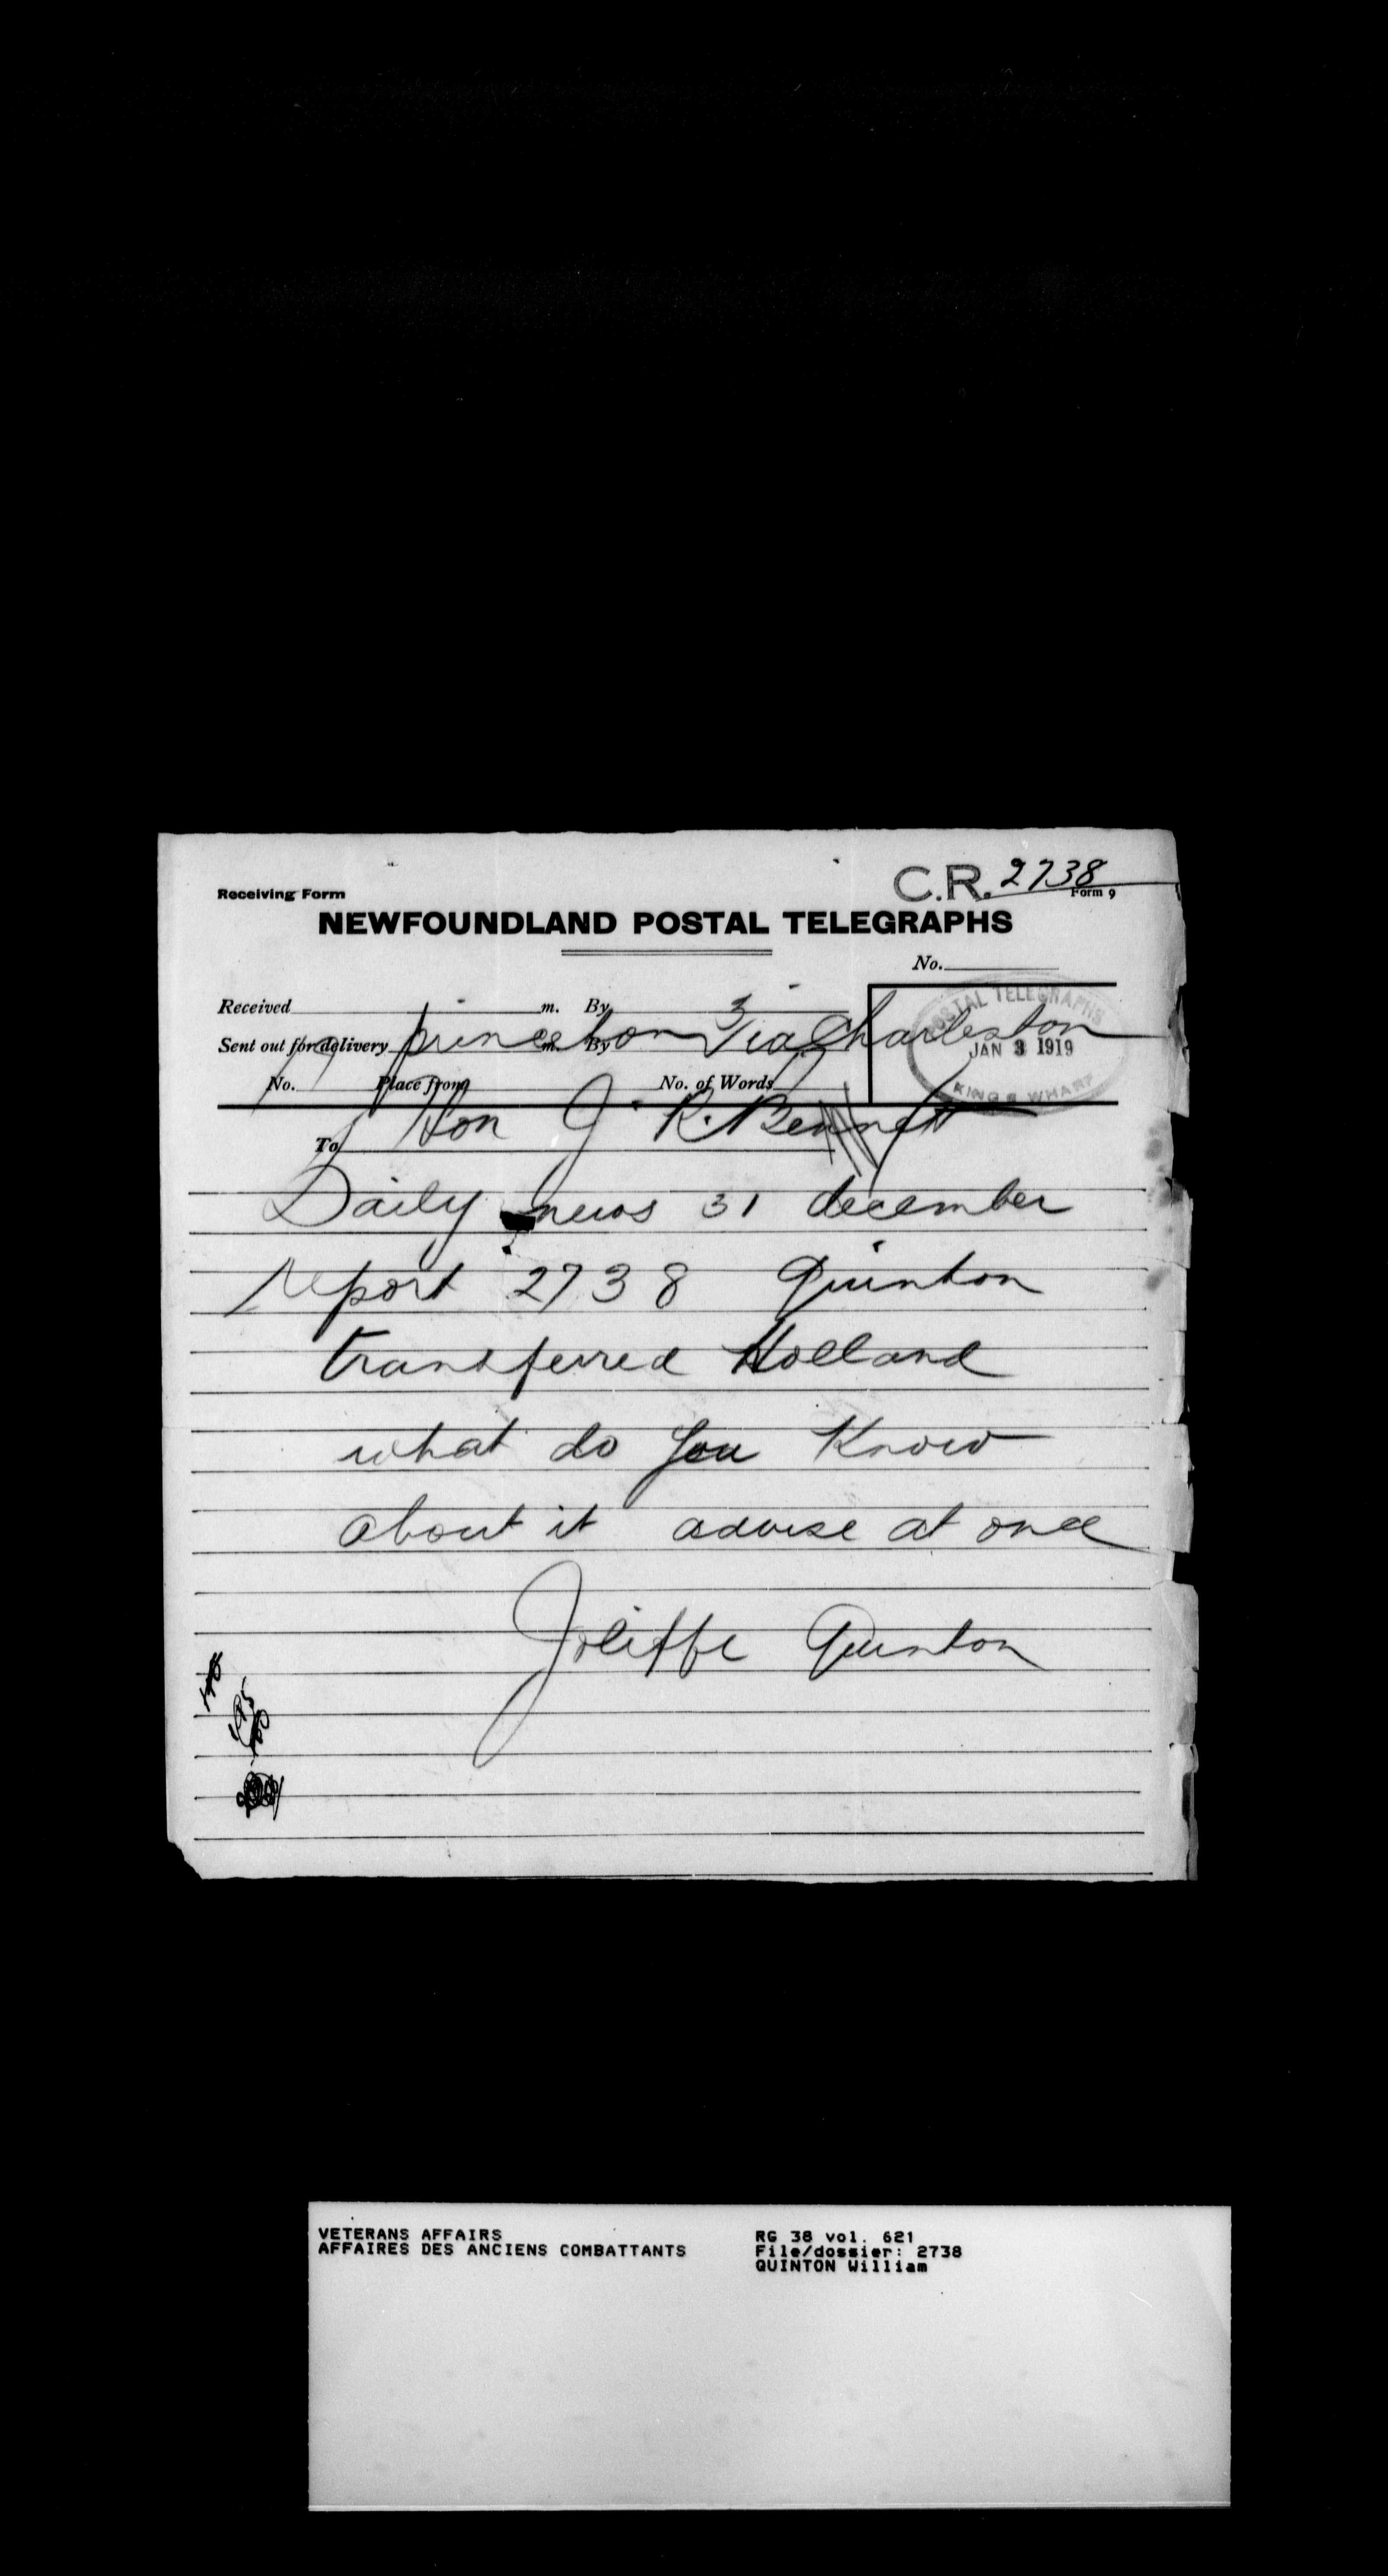 C.R. 2738
Receiving Form
Form 9
NEWFOUNDLAND POSTAL TELEGRAPHS
No.
Received m. By 3
POSTAL TELEGRAPHS
JAN 3 1919
KINGS WHARF
Sent out for delivery m. By
princeton Via Charleston
No. Place from No. of Words
To Hon J. R. Bennett
Daily news 31 december
report 2738 Quinton
transferred Holland
what do you Know
about it advise at once
Joliffe Quinton
VETERANS AFFAIRS
AFFAIRES DES ANCIENS COMBATTANTS
RG 38 vol. 621
File/dossier: 2738
QUINTON William